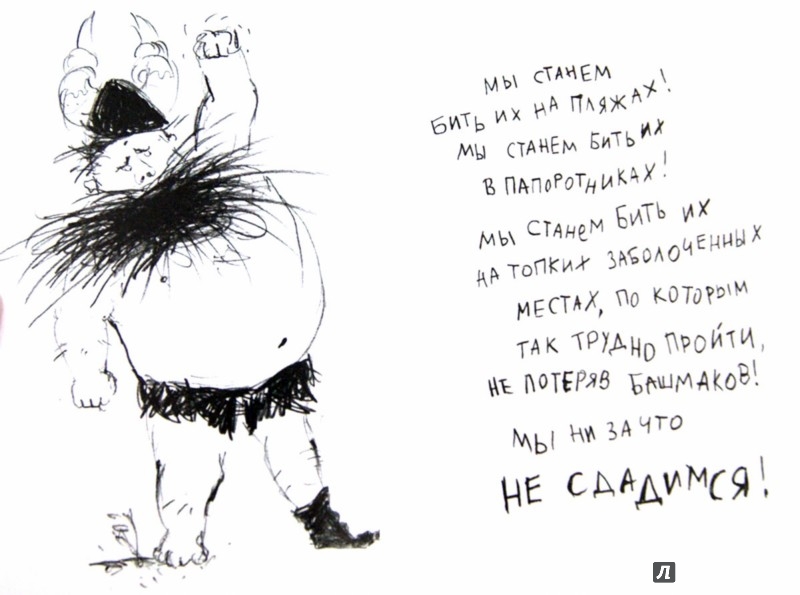 МЫ СТАНЕМ
БИТЬ ИХ НА ПЛЯЖАХ!
МЫ СТАНЕМ БИТЬ ИХ
В ПАПОРОТНИКАХ!
МЫ СТАНЕМ БИТЬ ИХ
НА ТОПКИХ ЗАБОЛОЧЕННЫХ
МЕСТАХ, ПО КОТОРЫМ
ТАК ТРУДНО ПРОЙТИ,
НЕ ПОТЕРЯВ БАШМАКОВ!
МЫ НИ ЗА ЧТО
НЕ СДАДИМСЯ!
Л